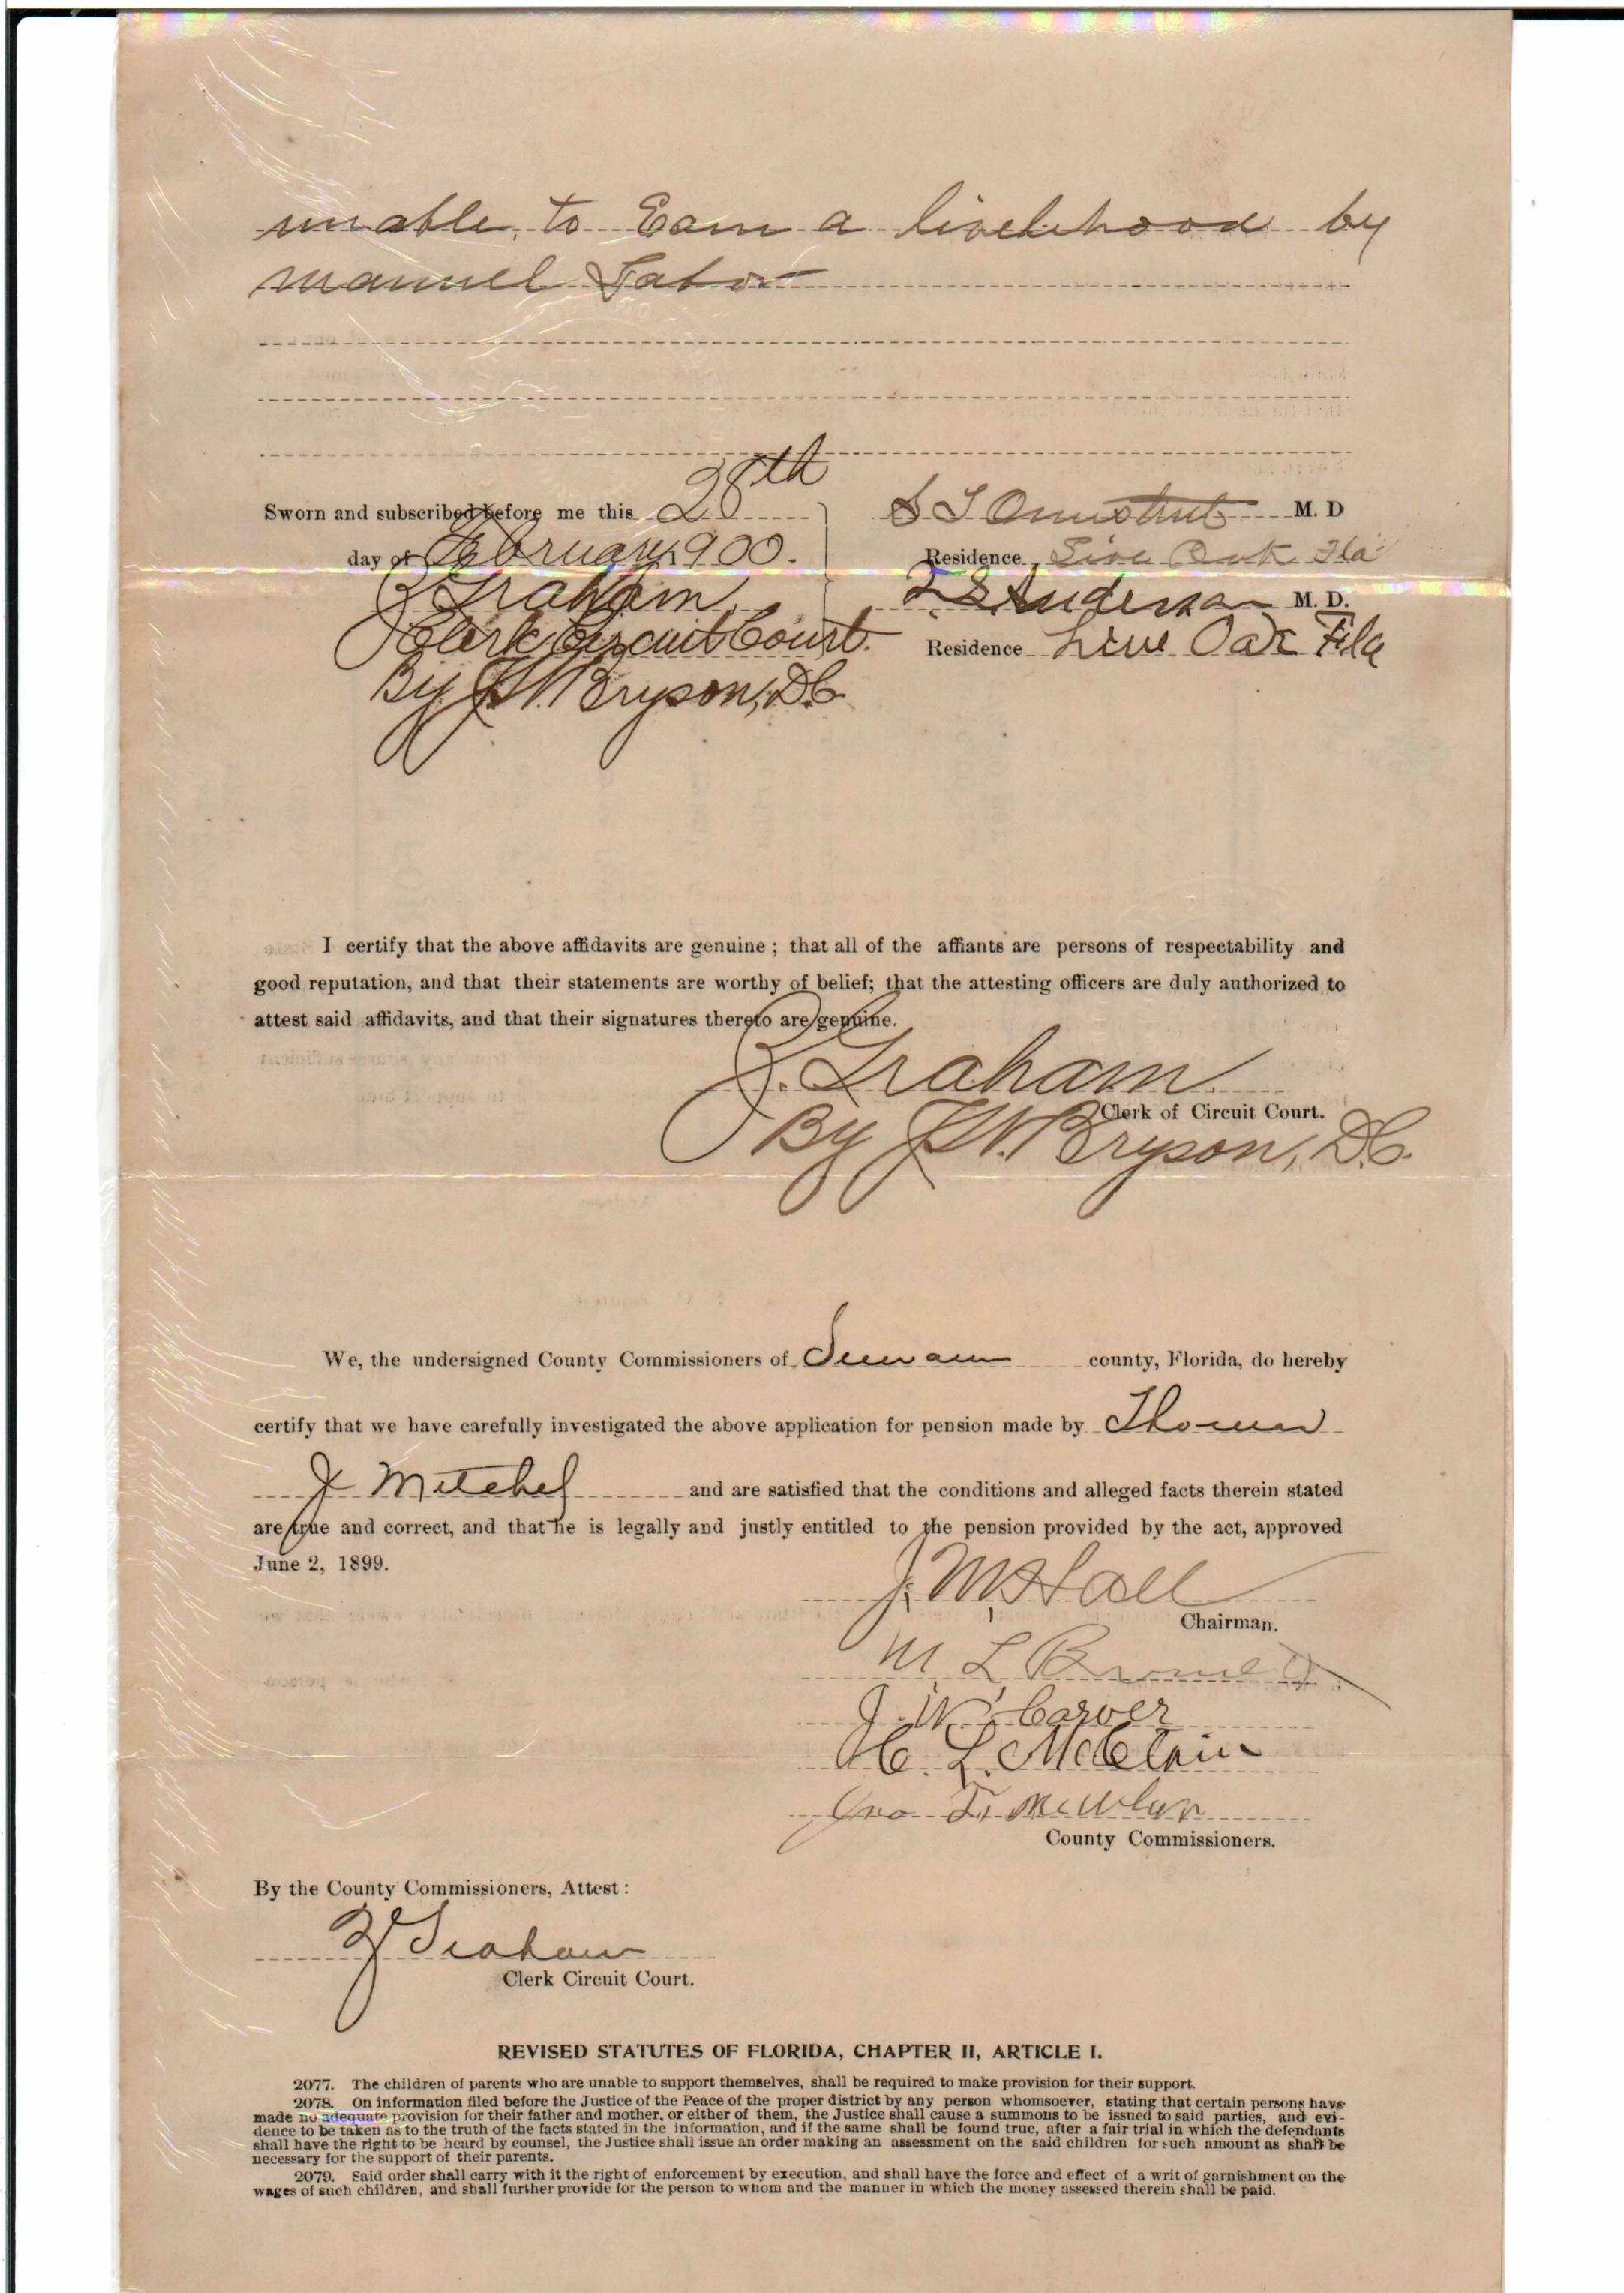 unable to Earn a livelihood by
manuel Labor
Sworn and subscribed before me this 28th
day of February 1900.
Graham
Clerk Circuit Court.
By Bryson, D.C.
M. D
Residence Live Oak Fla
Anderson M. D.
Residence Live Oak Fla
I certify that the above affidavits are genuine; that all of the affiants are persons of respectability and
good reputation, and that their statements are worthy of belief; that the attesting officers are duly authorized to
attest said affidavits, and that their signatures thereto are genuine.
Graham
Clerk of Circuit Court.
By Bryson, D.C.
We, the undersigned County Commissioners of county, Florida, do hereby
certify that we have carefully investigated the above application for pension made by Thomas
J Mitchel and are satisfied that the conditions and alleged facts therein stated
are true and correct, and that he is legally and justly entitled to the pension provided by the act, approved
June 2, 1899.
J. M. Hall
Chairman.
M. L.
J. W. Carver
H. L. McClain
Jno
County Commissioners.
By the County Commissioners, Attest:
Graham
Clerk Circuit Court.
REVISED STATUTES OF FLORIDA, CHAPTER II, ARTICLE I.
2077. The children of parents who are unable to support themselves, shall be required to make provision for their support.
2078. On information filed before the Justice of the Peace of the proper district by any person whomsoever, stating that certain persons have
made no adequate provision for their father and mother, or either of them, the Justice shall cause a summons to be issued to said parties, and evi-
dence to be taken as to the truth of the facts stated in the information, and if the same shall be found true, after a fair trial in which the defendants
shall have the right to be heard by counsel, the Justice shall issue an order making an assessment on the said children for such amount as shall be
necessary for the support of their parents.
2079. Said order shall carry with it the right of enforcement by execution, and shall have the force and effect of a writ of garnishment on the
wages of such children, and shall further provide for the person to whom and the manner in which the money assessed therein shall be paid.